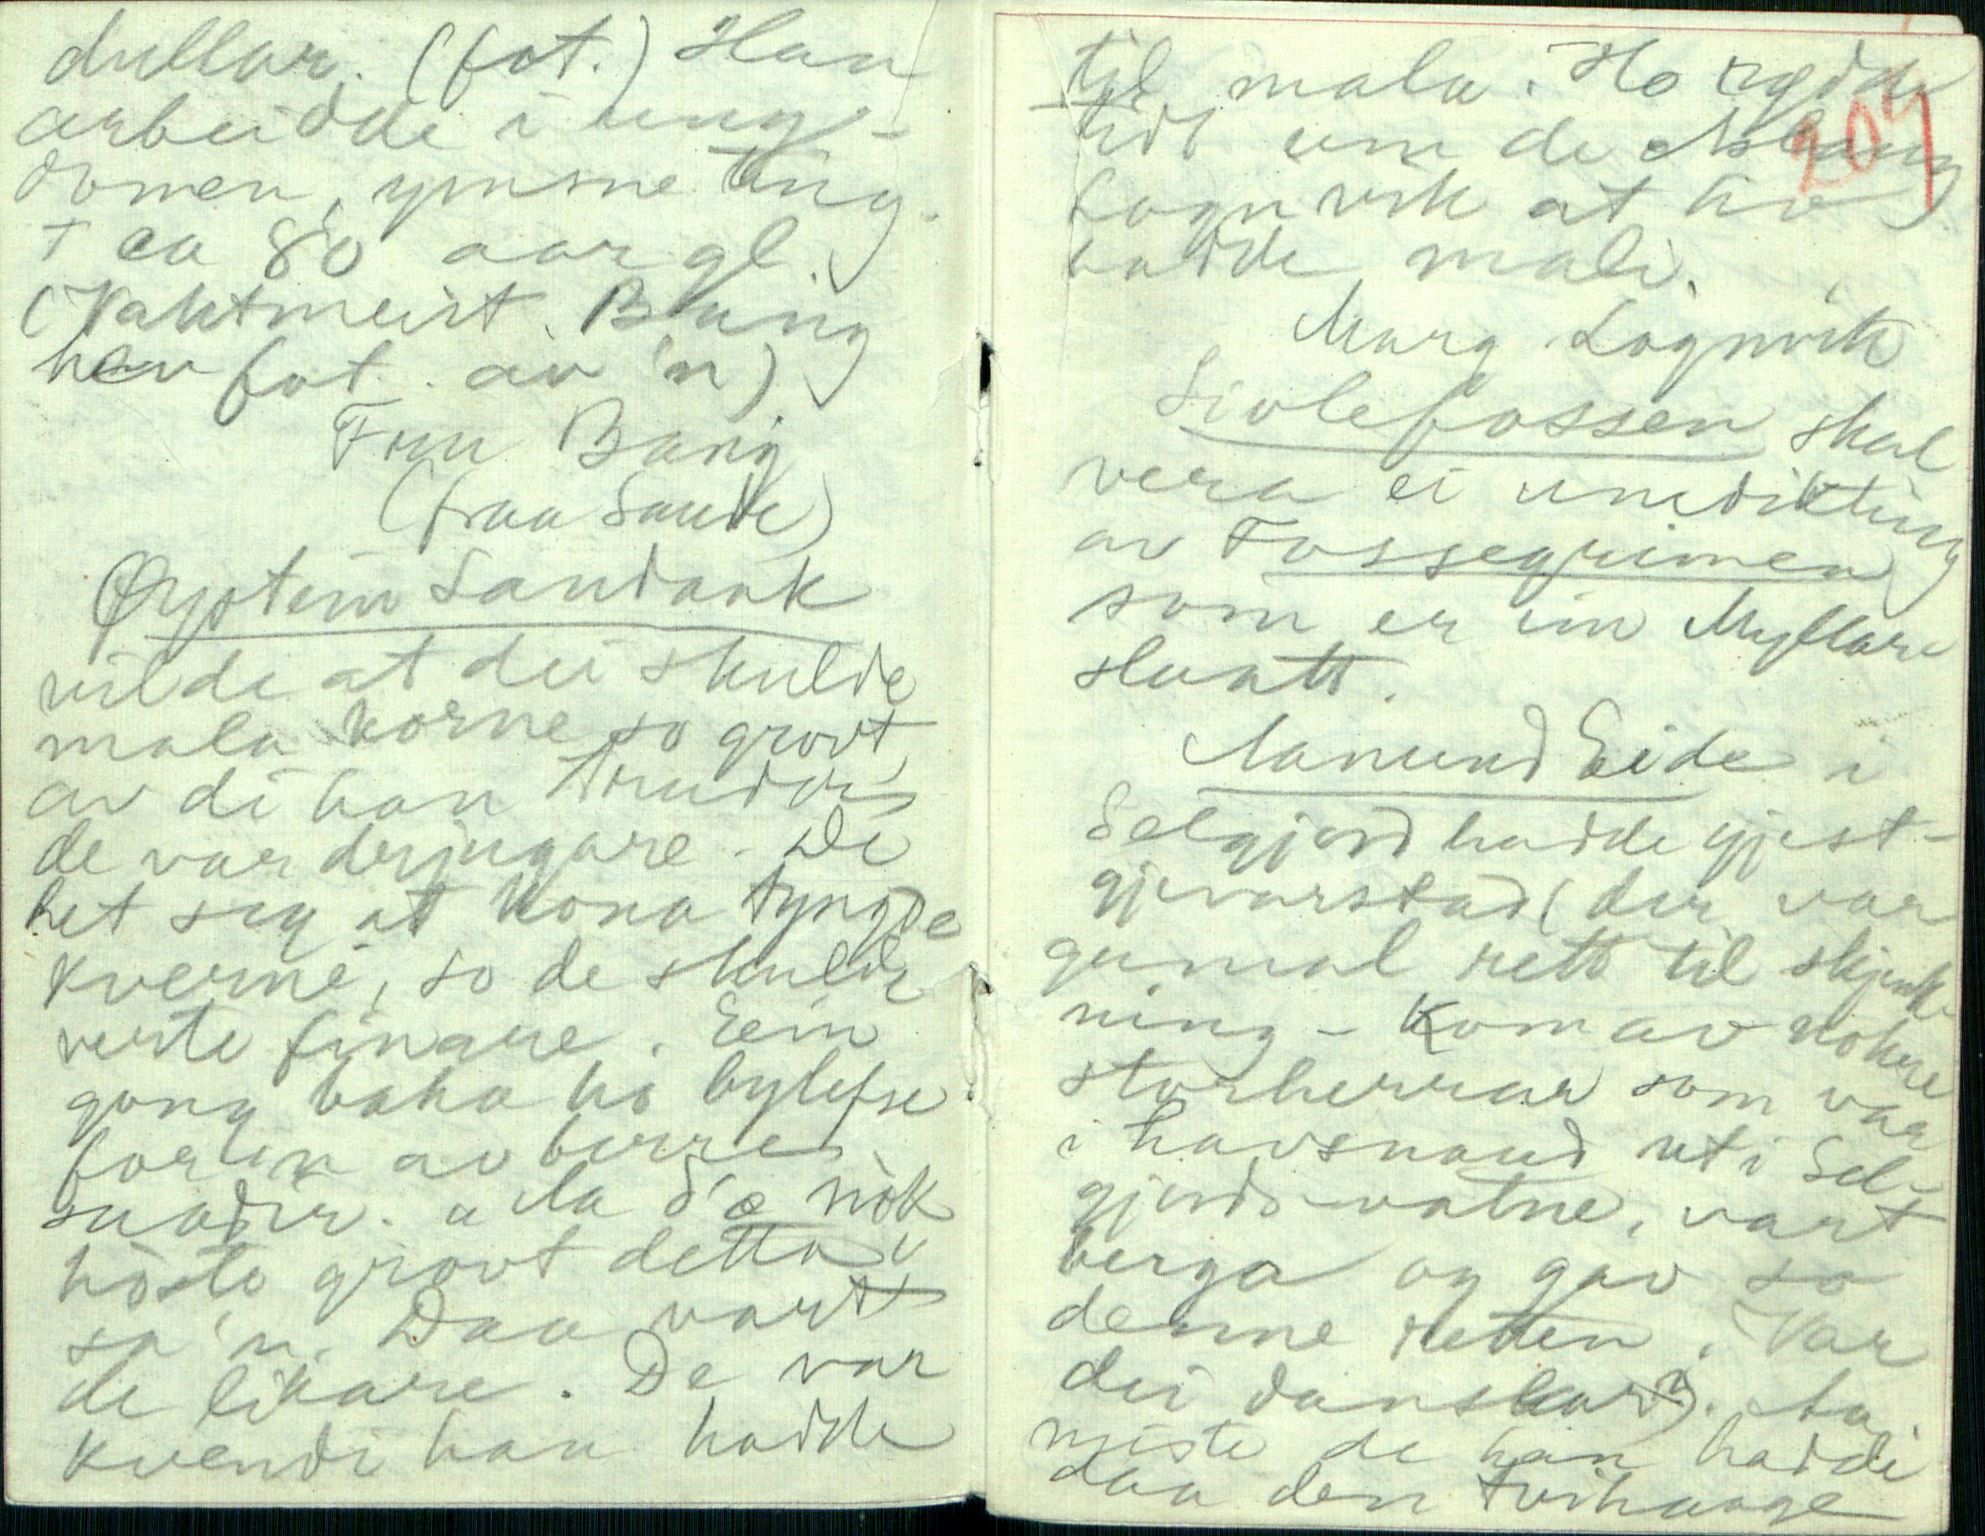 dullar. (fot.) Han
arbeidde i ung-
domen, ymsne ting.
+ ca 80 aar gl.
(Vaktmeist. Bang
hev fot. av 'n)
Fru Bang
(fraa Saude)
Øystein Sandaak
vilde at dei skulde
mala korne so grovt
av di han trudde
de var drjugare. De
het seg at kona tyngde
kverne, so de skulde
verte finare. Ein
gong baka ho bylefse
for'en av berre
suadir. "Aa d'æ nòk
hòsto grovt detta"
sa 'n. Daa vart
de likare. De var
kvendi han hadde
til mala. Ho rødde
tidt um de
Lognvik at ho
hadde mali.
Marg Lognvik
207
Sivlefossen skal
vera ei umdikting
av Fossegrimen
som er ein Myllar
slaatt.
Aamund Eide i
Selgjord hadde gjest-
gjevarstad (der var
gamal rett til skjenk-
ning - Kom av nokre
storherrar som var
i havsnaud uti Sel-
gjords-vatne, vart
berga og gav so
denne retten. Var
dei danskar?). Aa
miste de han hadde
daa den tvihaage